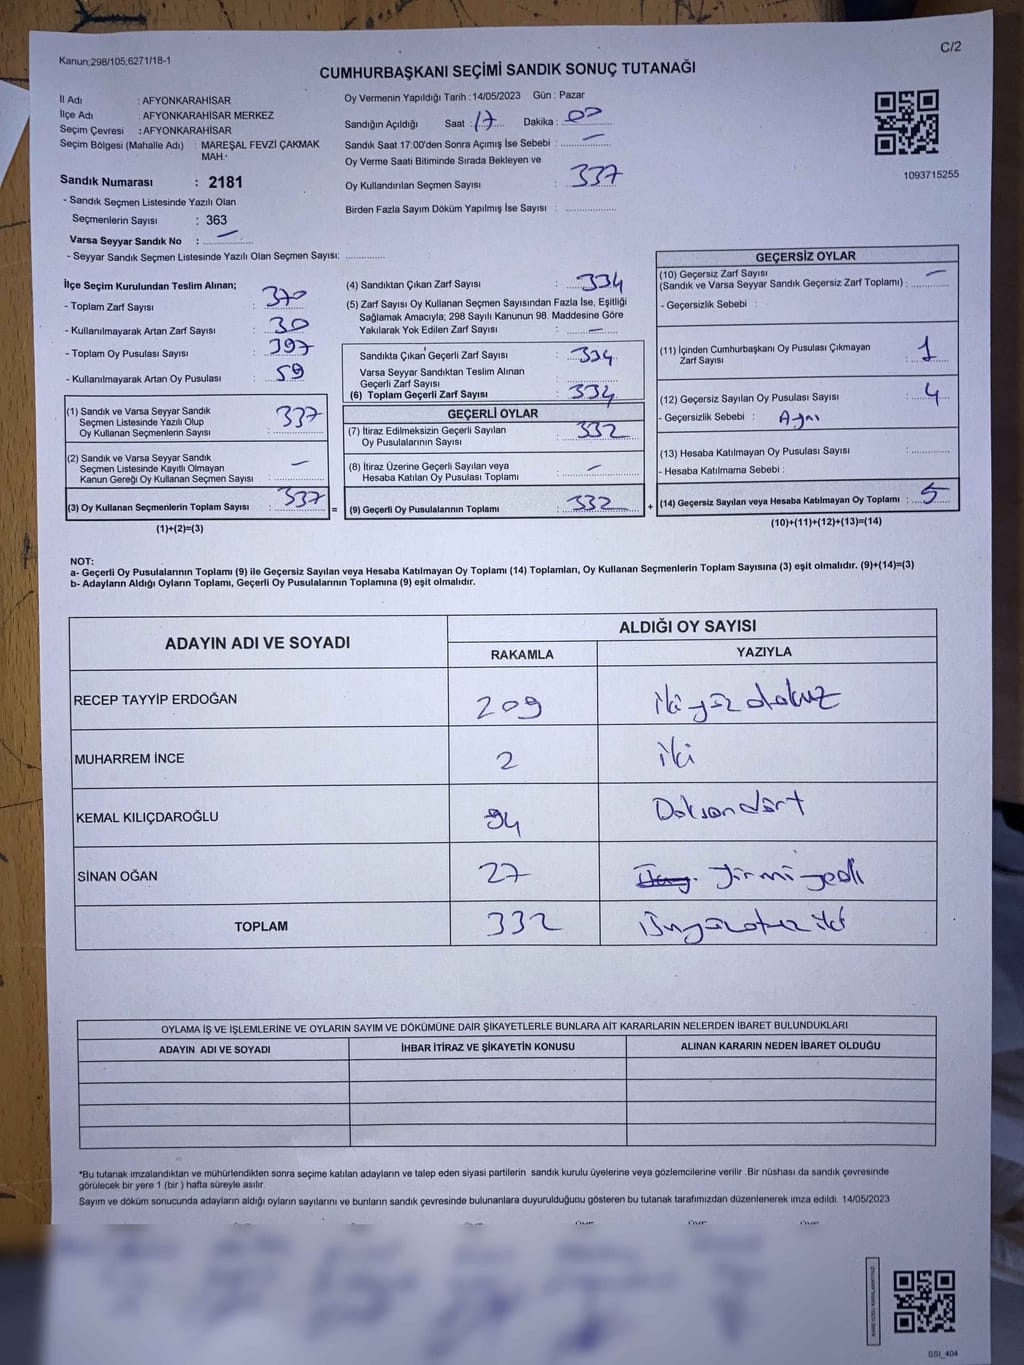 Kanun;298/105;6271/18-1
C/2
CUMHURBAŞKANI SEÇİMİ SANDIK SONUÇ TUTANAĞI
İl Adı : AFYONKARAHİSAR
İlçe Adı : AFYONKARAHİSAR MERKEZ
Seçim Çevresi : AFYONKARAHİSAR
Seçim Bölgesi (Mahalle Adı) : MAREŞAL FEVZİ ÇAKMAK
MAH.
Sandık Numarası : 2181
- Sandık Seçmen Listesinde Yazılı Olan
Seçmenlerin Sayısı : 363
Varsa Seyyar Sandık No : —
- Seyyar Sandık Seçmen Listesinde Yazılı Olan Seçmen Sayısı: ..............
Oy Vermenin Yapıldığı Tarih : 14/05/2023 Gün : Pazar
Sandığın Açıldığı Saat : 17 Dakika : 00
Sandık Saat 17:00'den Sonra Açımış İse Sebebi : —
Oy Verme Saati Bitiminde Sırada Bekleyen ve
Oy Kullandırılan Seçmen Sayısı : 337
Birden Fazla Sayım Döküm Yapılmış İse Sayısı : ..............
1093715255
İlçe Seçim Kurulundan Teslim Alınan;
- Toplam Zarf Sayısı : 370
- Kullanılmayarak Artan Zarf Sayısı : 30
- Toplam Oy Pusulası Sayısı : 397
- Kullanılmayarak Artan Oy Pusulası : 59
(1) Sandık ve Varsa Seyyar Sandık
Seçmen Listesinde Yazılı Olup
Oy Kullanan Seçmenlerin Sayısı : 337
(2) Sandık ve Varsa Seyyar Sandık
Seçmen Listesinde Kayıtlı Olmayan
Kanun Gereği Oy Kullanan Seçmen Sayısı : —
(3) Oy Kullanan Seçmenlerin Toplam Sayısı : 337 =
(1)+(2)=(3)
(4) Sandıktan Çıkan Zarf Sayısı : 334
(5) Zarf Sayısı Oy Kullanan Seçmen Sayısından Fazla İse, Eşitliği
Sağlamak Amacıyla; 298 Sayılı Kanunun 98. Maddesine Göre
Yakılarak Yok Edilen Zarf Sayısı : —
Sandıkta Çıkan Geçerli Zarf Sayısı : 334
Varsa Seyyar Sandıktan Teslim Alınan
Geçerli Zarf Sayısı : ..............
(6) Toplam Geçerli Zarf Sayısı : 334
GEÇERLİ OYLAR
(7) İtiraz Edilmeksizin Geçerli Sayılan
Oy Pusulalarının Sayısı : 332
(8) İtiraz Üzerine Geçerli Sayılan veya
Hesaba Katılan Oy Pusulası Toplamı : —
(9) Geçerli Oy Pusulalarının Toplamı : 332 +
GEÇERSİZ OYLAR
(10) Geçersiz Zarf Sayısı
(Sandık ve Varsa Seyyar Sandık Geçersiz Zarf Toplamı) : —
- Geçersizlik Sebebi :
(11) İçinden Cumhurbaşkanı Oy Pusulası Çıkmayan
Zarf Sayısı : 1
(12) Geçersiz Sayılan Oy Pusulası Sayısı : 4
- Geçersizlik Sebebi : Aynı
(13) Hesaba Katılmayan Oy Pusulası Sayısı : ..............
- Hesaba Katılmama Sebebi :
(14) Geçersiz Sayılan veya Hesaba Katılmayan Oy Toplamı : 5
(10)+(11)+(12)+(13)=(14)
NOT:
a- Geçerli Oy Pusulalarının Toplamı (9) ile Geçersiz Sayılan veya Hesaba Katılmayan Oy Toplamı (14) Toplamları, Oy Kullanan Seçmenlerin Toplam Sayısına (3) eşit olmalıdır. (9)+(14)=(3)
b- Adayların Aldığı Oyların Toplamı, Geçerli Oy Pusulalarının Toplamına (9) eşit olmalıdır.
ADAYIN ADI VE SOYADI ALDIĞI OY SAYISI
RAKAMLA YAZIYLA
RECEP TAYYİP ERDOĞAN 209 iki yüz dokuz
MUHARREM İNCE 2 iki
KEMAL KILIÇDAROĞLU 94 Doksandört
SİNAN OĞAN 27 Yirmi yedi
TOPLAM 332 üçyüzotuz iki
OYLAMA İŞ VE İŞLEMLERİNE VE OYLARIN SAYIM VE DÖKÜMÜNE DAİR ŞİKAYETLERLE BUNLARA AİT KARARLARIN NELERDEN İBARET BULUNDUKLARI
ADAYIN ADI VE SOYADI İHBAR İTİRAZ VE ŞİKAYETİN KONUSU ALINAN KARARIN NEDEN İBARET OLDUĞU
*Bu tutanak imzalandıktan ve mühürlendikten sonra seçime katılan adayların ve talep eden siyasi partilerin sandık kurulu üyelerine veya gözlemcilerine verilir. Bir nüshası da sandık çevresinde
görülecek bir yere 1 (bir) hafta süreyle asılır.
Sayım ve döküm sonucunda adayların aldığı oyların sayılarını ve bunların sandık çevresinde bulunanlara duyurulduğunu gösteren bu tutanak tarafımızdan düzenlenerek imza edildi. 14/05/2023
SSI_404